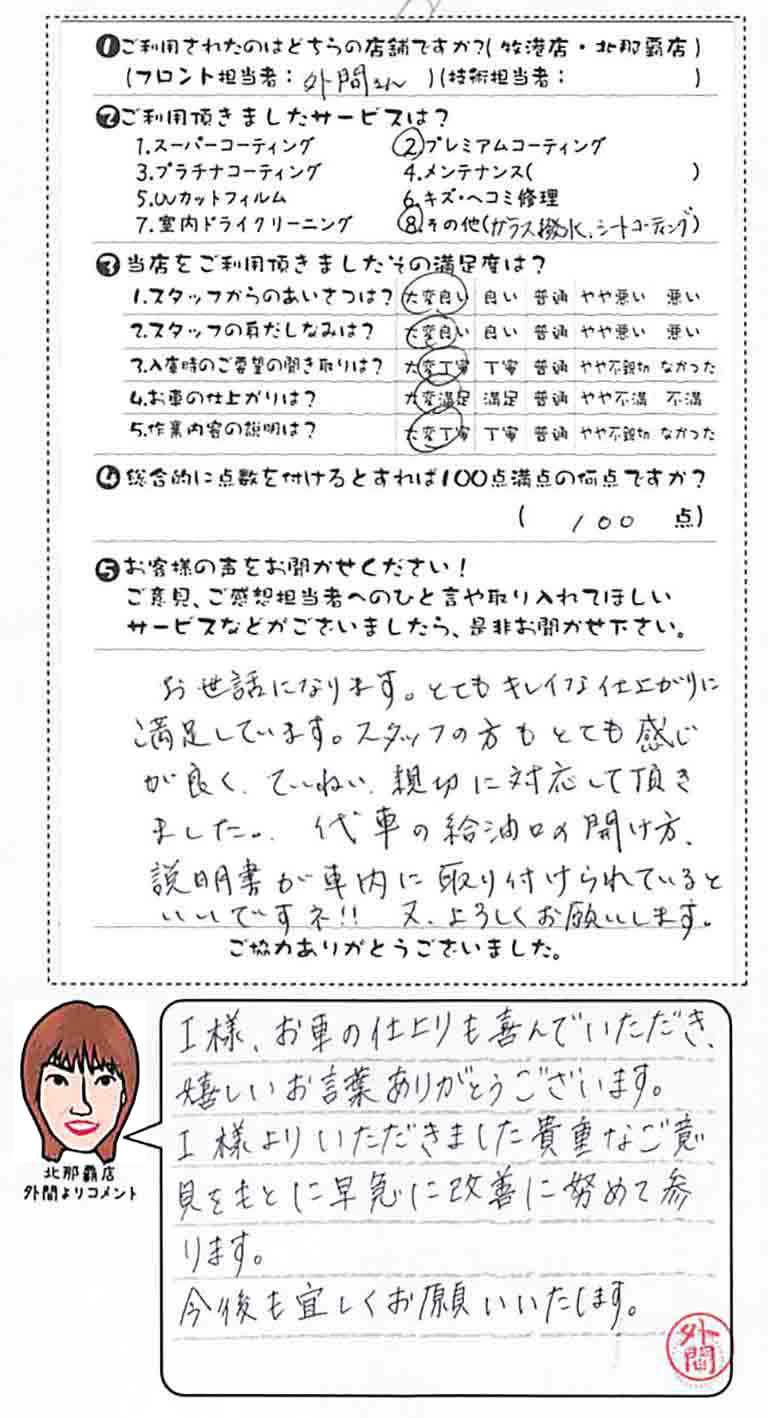 ❶ご利用されたのはどちらの店舗ですか?(牧港店・北那覇店)
(フロント担当者: 外間さん )(技術担当者: )
❷ご利用頂きましたサービスは?
1.スーパーコーティング ②プレミアムコーティング
3.プラチナコーティング 4.メンテナンス( )
5.UVカットフィルム 6.キズ・ヘコミ修理
7.室内ドライクリーニング ⑧.その他(ガラス撥水、シートコーティング)
❸当店をご利用頂きましたその満足度は?
1.スタッフからのあいさつは? 大変良い 良い 普通 やや悪い 悪い
2.スタッフの身だしなみは? 大変良い 良い 普通 やや悪い 悪い
3.入庫時のご要望の聞き取りは? 大変丁寧 丁寧 普通 やや不親切 なかった
4.お車の仕上がりは? 大変満足 満足 普通 やや不満 不満
5.作業内容の説明は? 大変丁寧 丁寧 普通 やや不親切 なかった
❹総合的に点数を付けるとすれば100点満点の何点ですか?
( 100 点)
❺お客様の声をお聞かせください!
ご意見、ご感想担当者へのひと言や取り入れてほしい
サービスなどがございましたら、是非お聞かせ下さい。
お世話になります。とてもキレイな仕上がりに
満足しています。スタッフの方もとても感じ
が良く、ていねい、親切に対応して頂き
ました。. 代車の給油口の開け方、
説明書が車内に取り付けられていると
いいですネ!! 又、よろしくお願いします。
ご協力ありがとうございました。
I様、お車の仕上りも喜んでいただき、
嬉しいお言葉ありがとうございます。
I様よりいただきました貴重なご意
見をもとに早急に改善に努めて参
ります。
今後も宜しくお願いいたします。
北那覇店
外間よりコメント
外間